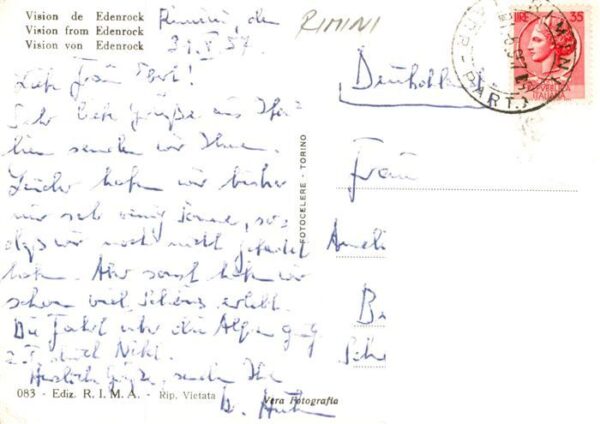 Vision de Edenrock
Vision from Edenrock
Vision von Edenrock
Rimini, den
31.V.57.
RIMINI
Liebe Frau Ebel!
Sehr liebe Grüße aus Ita-
lien senden wir Ihnen.
Leider haben wir bisher
nur sehr wenig Sonne, so-
daß wir noch nicht gebadet
haben. Aber sonst haben wir
schon viel Schönes erlebt.
Die Fahrt über die Alpen ging
z.T. durch Nebel.
Herzliche Grüße senden Ihnen
083 - Ediz. R.I.M.A. - Rip. Vietata
Vera Fotografia
FOTOCELERE - TORINO
LIRE 35
REPVBBLICA
ITALIANA
Deutschland
Frau